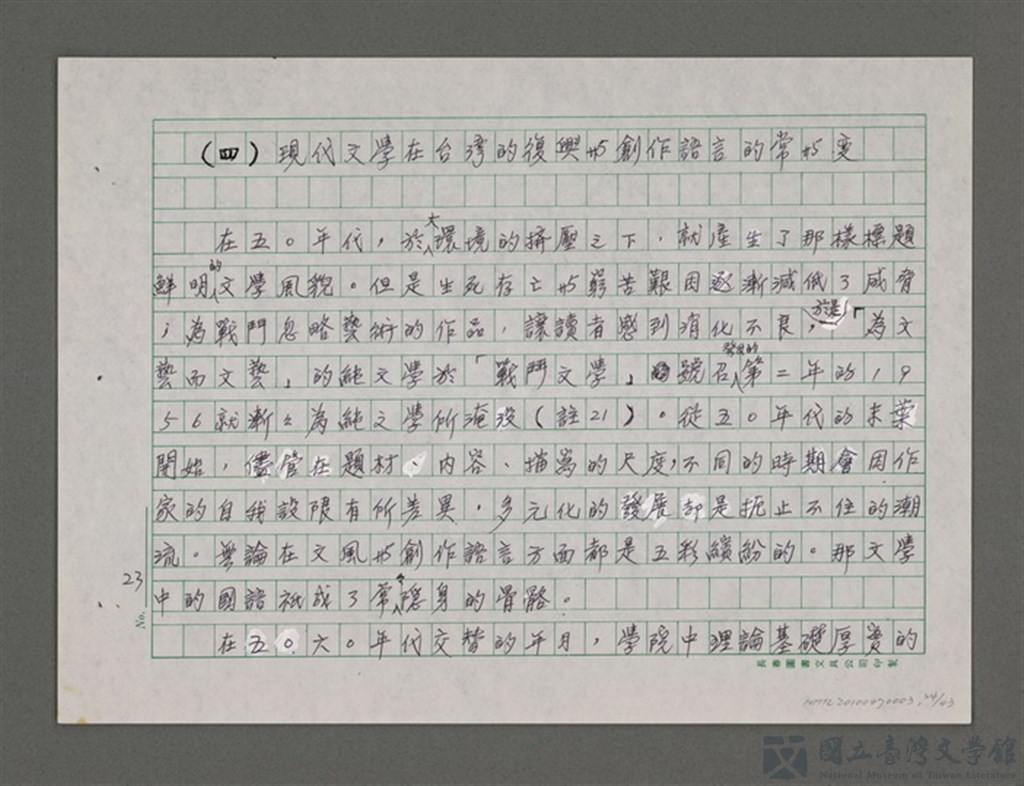 (四)現代文學在台灣的復興与創作語言的常与变
在五〇年代，於大環境的擠壓之下，就產生了那樣標題
鮮明的文學風貌。但是生死存亡与窮苦艱困逐漸減低了威脅
；為戰鬥忽略藝術的作品，讓讀者感到消化不良，於是「為文
藝而文藝」的純文學於「戰鬥文學」號召發出的第二年的19
56就漸々為純文學所淹没(註21)。從五〇年代的末葉
開始，儘管在題材、內容、描寫的尺度，不同的時期會因作
家的自我設限有所差異，多元化的發展却是扼止不住的潮
流。無論在文風与創作語言方面都是五彩繽紛的。那文學
中的國語祇成了常隱身的骨骼。
在五〇六〇年代交替的年月，學院中理論基礎厚實的
No. 23
長春圖書文具公司印製
NMTL20100070003,24/43
國立臺灣文學館
National Museum of Taiwan Literature